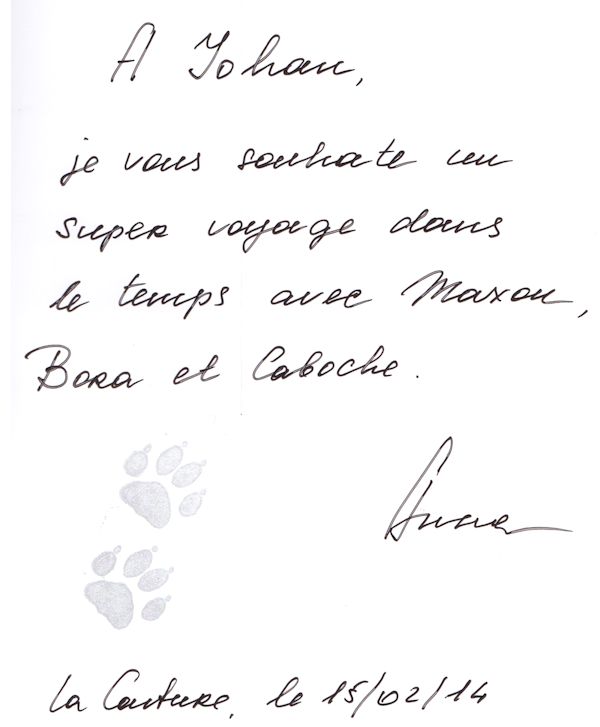 A Yohan,
je vous souhate un
super voyage dans
le temps avec Maxou,
Bora et Caboche.
Anna
La Couture, le 15/02/14